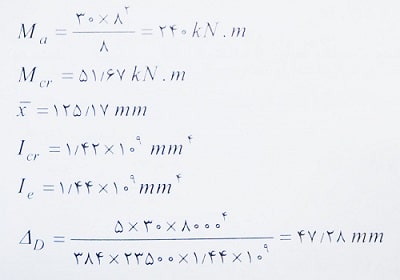 M_a = ۳۰×۸^۲ / ۸ = ۲۴۰ kN.m
M_cr = ۵۱/۶۷ kN.m
x̄ = ۱۲۵/۱۷ mm
I_cr = ۱/۴۲×۱۰^۹ mm^۴
I_e = ۱/۴۴×۱۰^۹ mm^۴
Δ_D = ۵×۳۰×۸۰۰۰^۴ / ۳۸۴×۲۳۵۰۰×۱/۴۴×۱۰^۹ = ۴۷/۲۸ mm